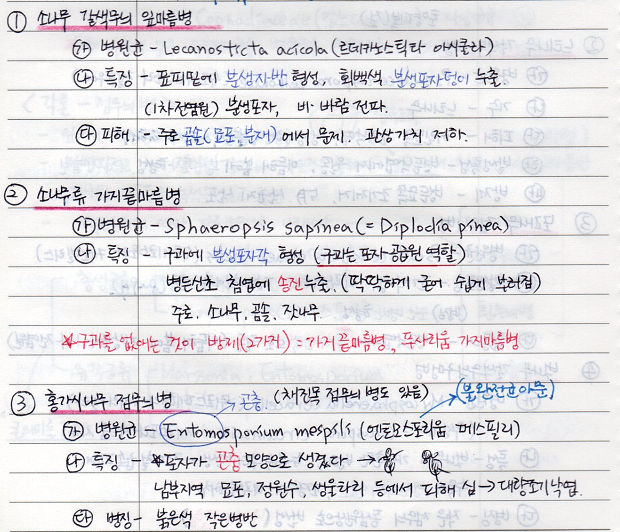 ① 소나무 갈색무늬 잎마름병
㉮ 병원균 - Lecanosticta acicola (르데카노스틱타 아시콜라)
㉯ 특징 - 표피밑에 분생자반 형성, 회백색 분생포자덩이 누출.
(1차전염원) 분생포자, 비·바람 전파.
㉰ 피해. - 주로 곰솔(묘포, 분재)에서 문제. 관상가치 저하.
② 소나무류 가지끝마름병
㉮ 병원균 - Sphaeropsis sapinea (= Diplodia pinea)
㉯ 특징 - 구과에 분생포자각 형성 (구과는 포자공급원 역할)
병든신초 침엽에 송진누출. (딱딱하게 굳어 쉽게 부러짐)
주로, 소나무, 곰솔, 잣나무
* 구과를 없애는 것이 방제(2가지) = 가지끝마름병, 푸사리움 가지마름병
③ 홍가시나무 점무늬병
곤충 (채진목 점무늬병도 있음) (불완전균아문)
㉮ 병원균 Entomosporium mespili (엔토모스포리움 메스필리)
㉯ 특징 * 포자가 곤충 모양으로 생겼다 →
남부지역 묘포, 정원수, 생울타리 등에서 피해 심 → 대량조기낙엽.
㉰ 병징 - 붉은색 작은병반